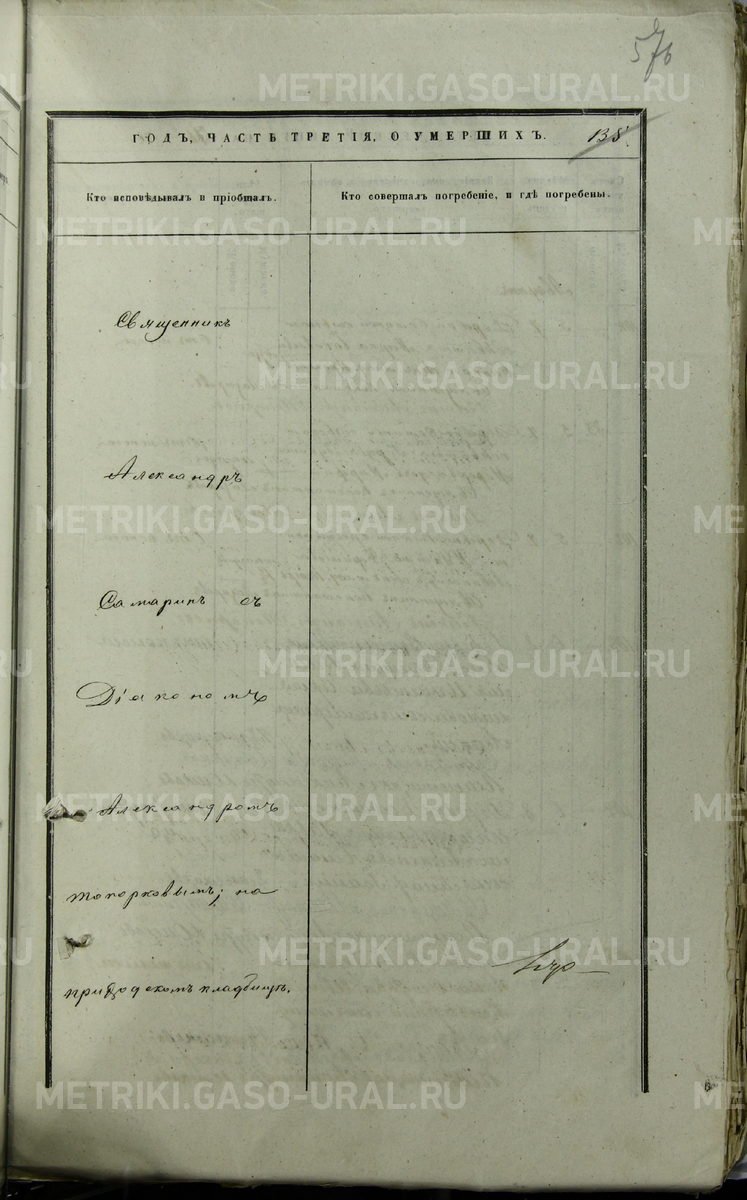 576
ГОДЪ, ЧАСТЬ ТРЕТІЯ, О УМЕРШИХЪ.
138
Кто исповѣдывалъ и пріобталъ.
Кто совершалъ погребеніе, и гдѣ погребены.
Священникъ
Александръ
Самаринъ съ
Діакономъ
Александромъ
Топорковымъ; на
приходскомъ кладбищѣ.
METRIKI.GASO-URAL.RU